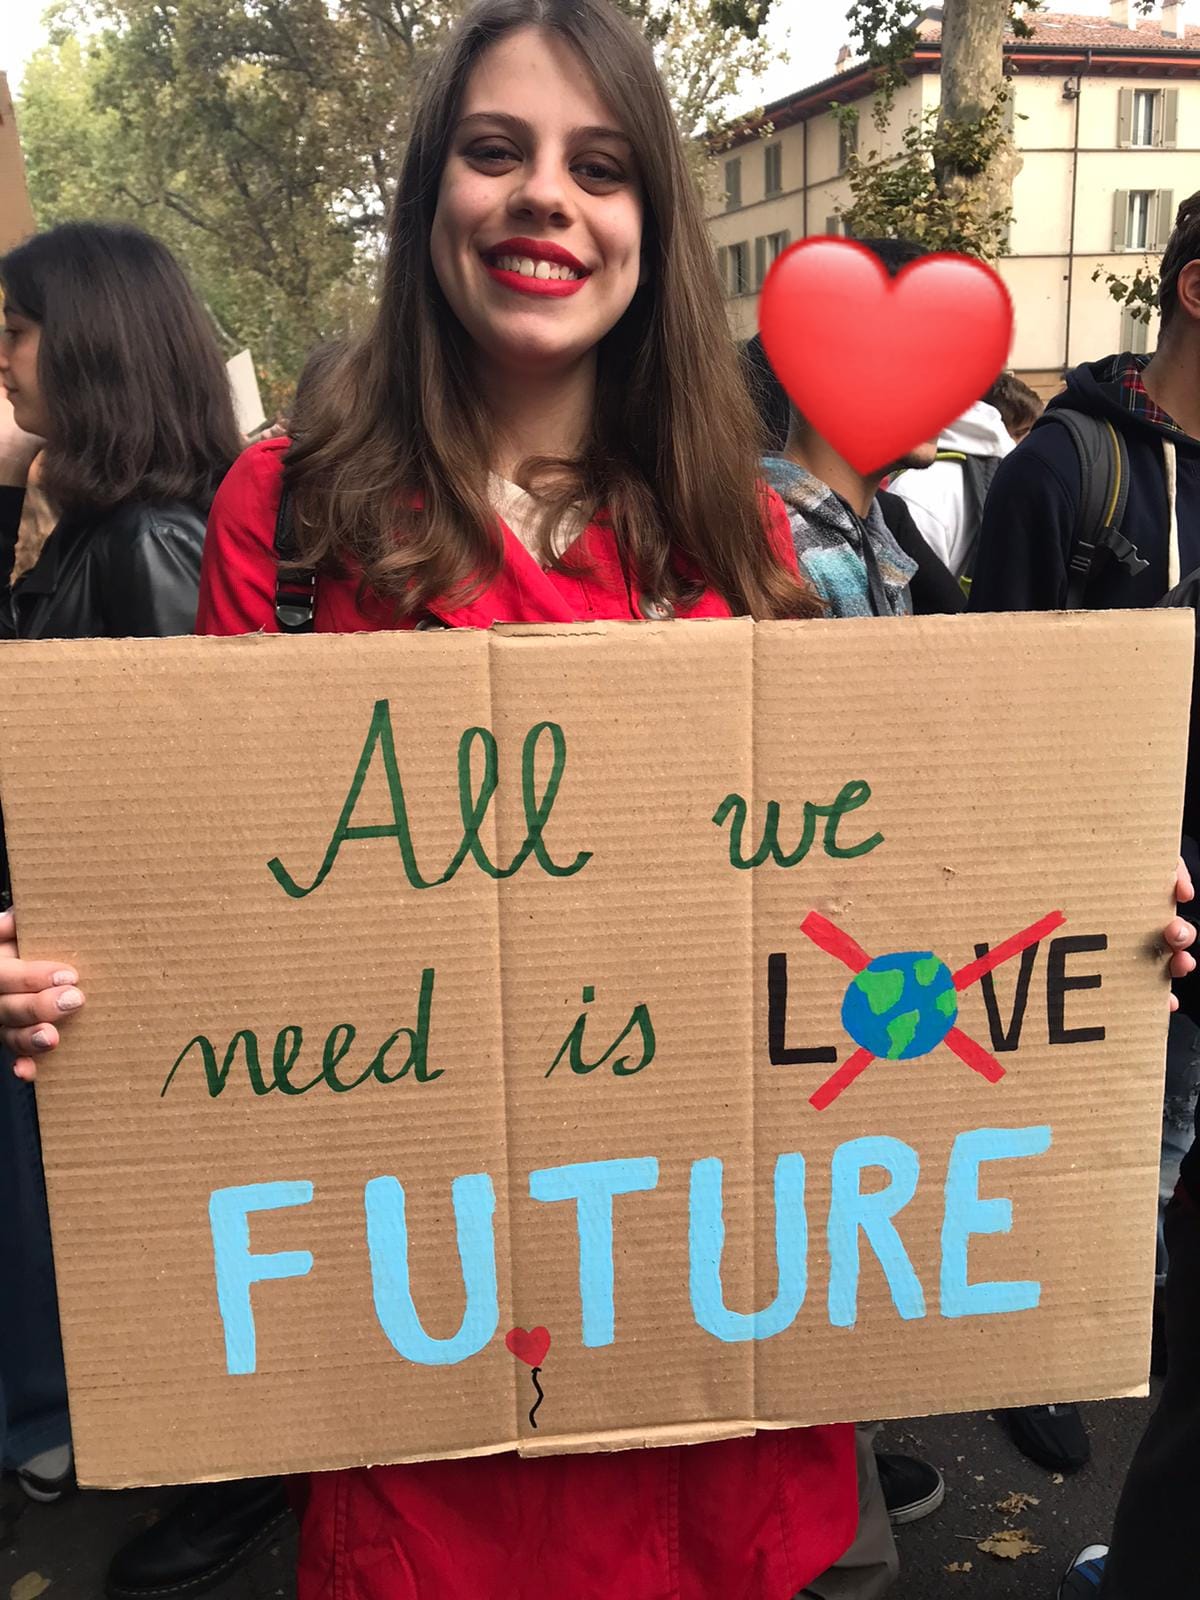 All we
need is LOVE
FUTURE